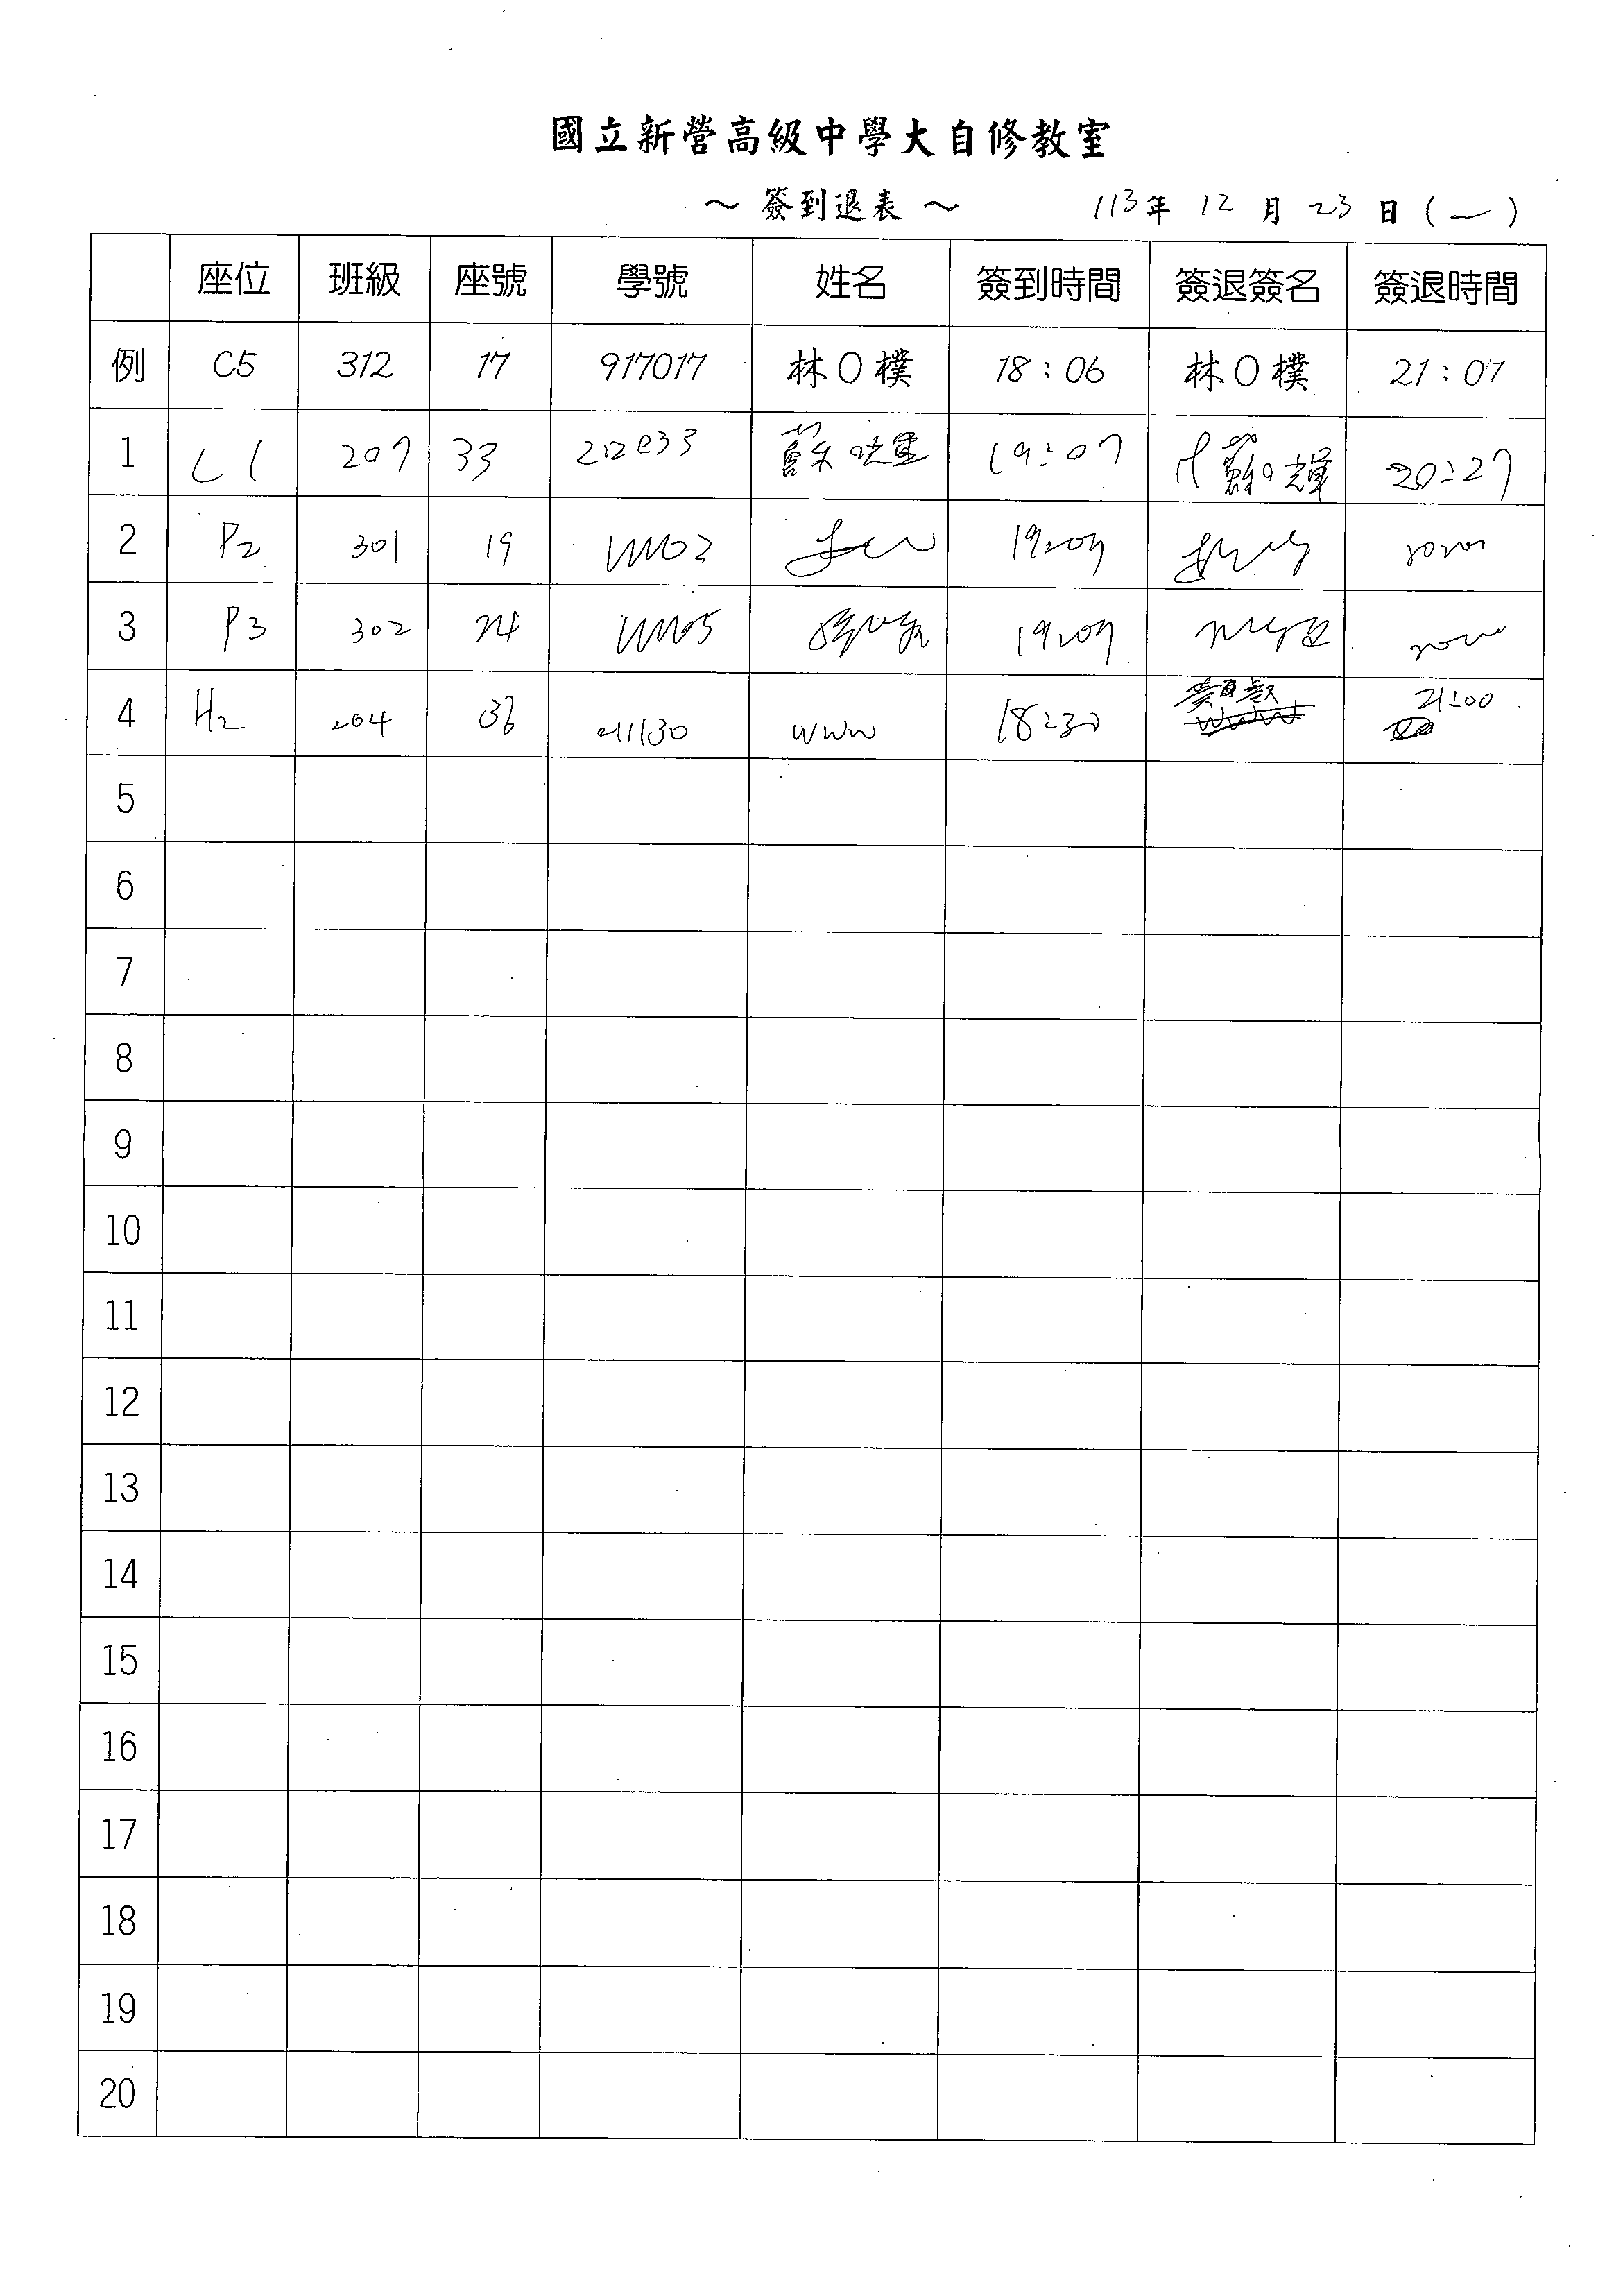 國立新營高級中學大自修教室
～ 簽到退表 ～ 113年 12 月 23 日 (一)
座位 班級 座號 學號 姓名 簽到時間 簽退簽名 簽退時間
例 C5 312 17 917017 林O樸 18:06 林O樸 21:07
1 L1 207 33 蘇 19:07 蘇 輝 20:27
2 P2 301 19 19:09
3 P3 302 24 19:09
4 H2 204 36 www 18:30 21:00
5
6
7
8
9
10
11
12
13
14
15
16
17
18
19
20